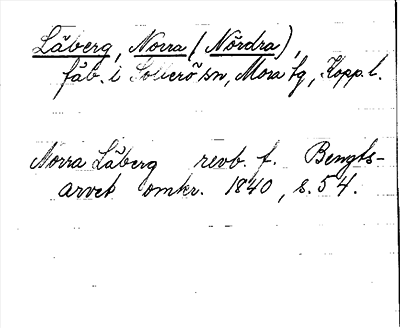 Låberg, Norra (Nordra),
fäb. i Sollerö sn, Mora tg, Kopp. l.
Norra Låberg revb. f. Bengts-
arvet omkr. 1840, s. 54.